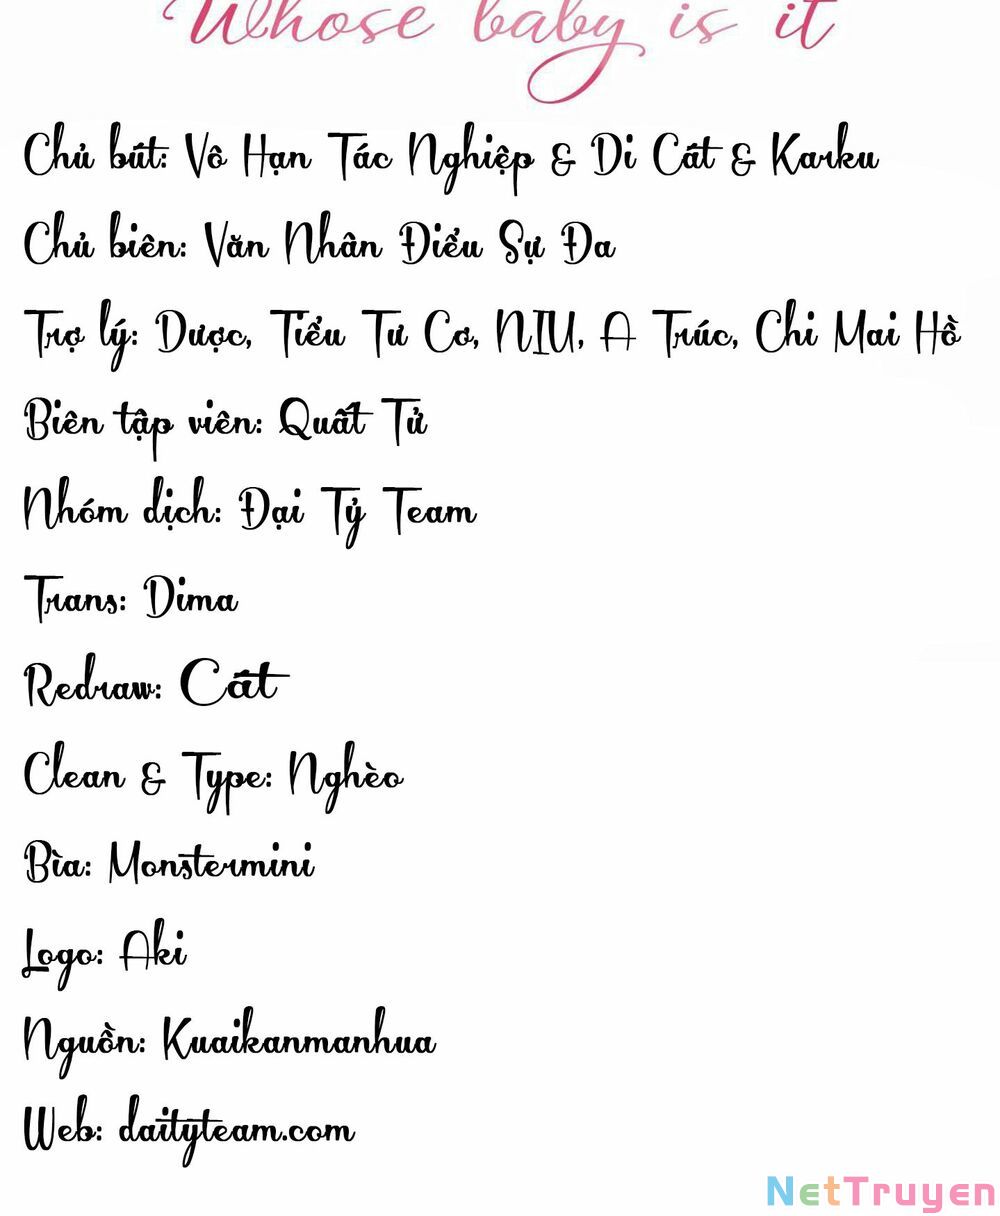 Whose baby is it
Chủ bút: Vô Hạn Tác Nghiệp & Di Cát & Karku
Chủ biên: Văn Nhân Điểu Sự Đa
Trợ lý: Dược, Tiểu Tư Cơ, NIU, A Trúc, Chi Mai Hồ
Biên tập viên: Quất Tử
Nhóm dịch: Đại Tỷ Team
Trans: Dima
Redraw: Cát
Clean & Type: Nghèo
Bìa: Monstermini
Logo: Aki
Nguồn: Kuaikanmanhua
Web: daityteam.com
NetTruyen